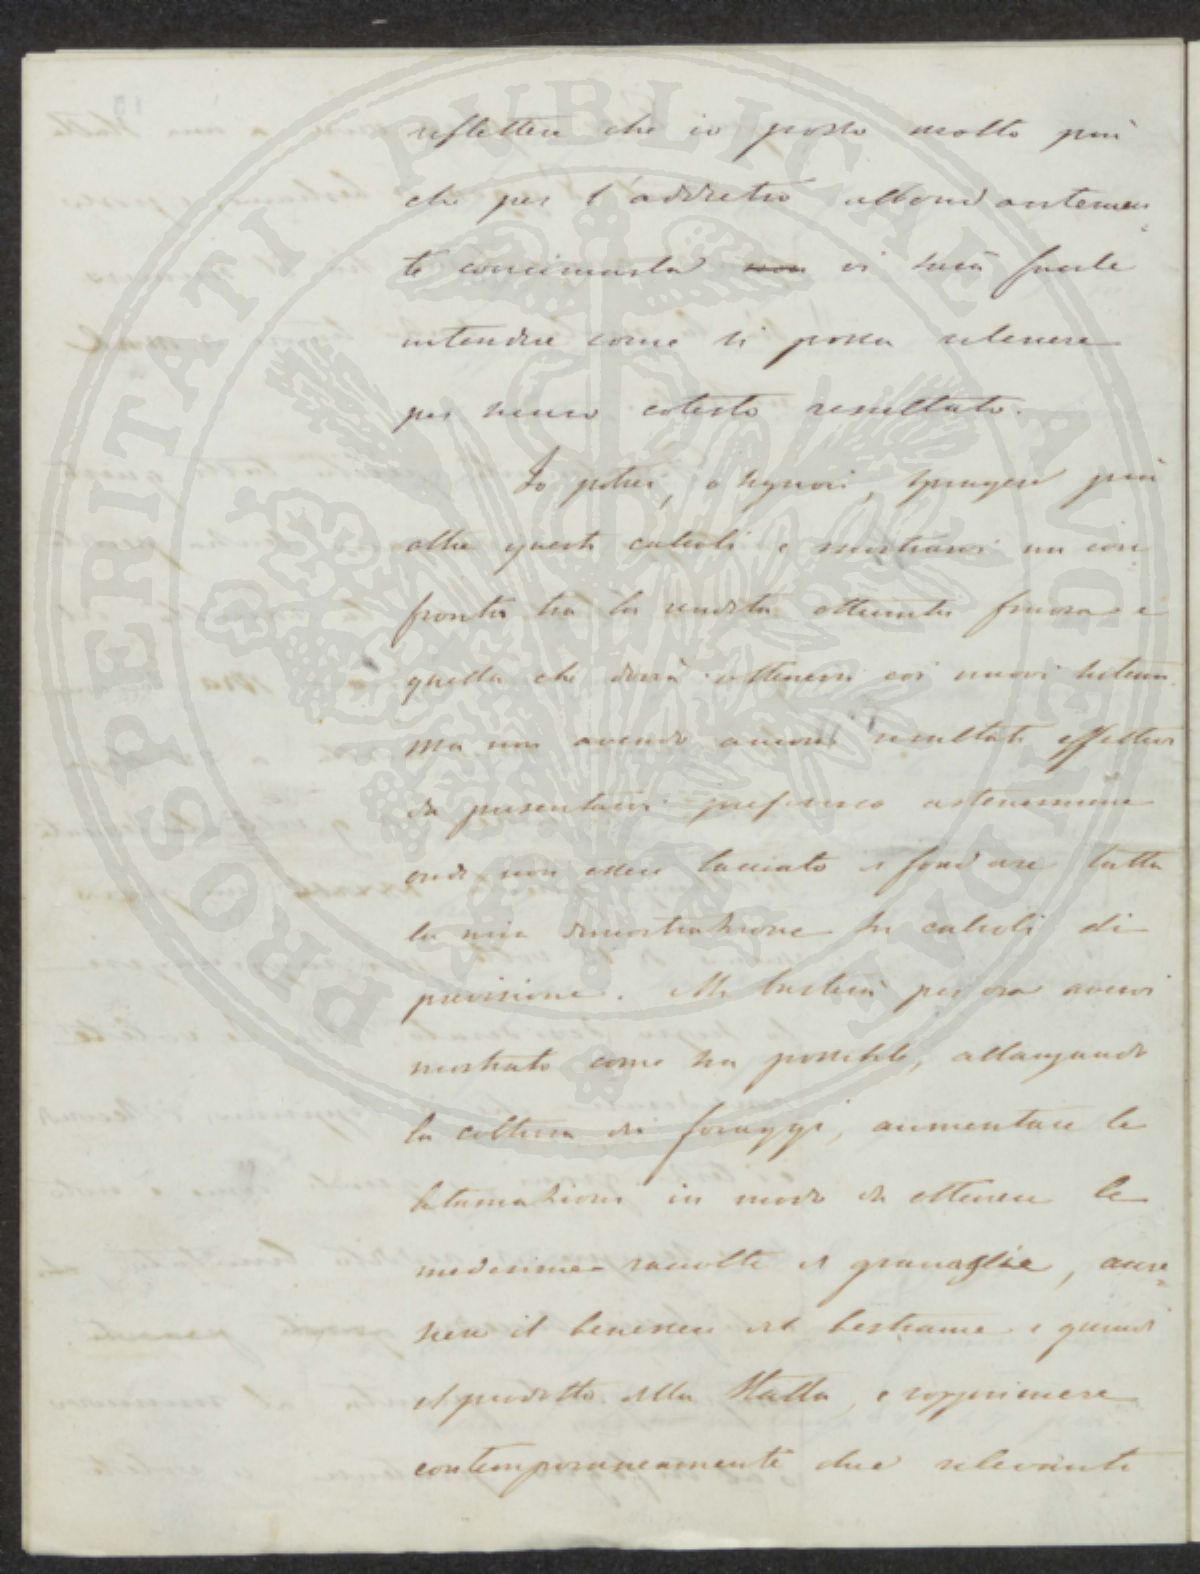 riflettere che io posso molto più
che per l'addietro abbondantemen=
te concimarla non vi sarà facile
intendere come si possa ritenere
per sicuro cotesto resultato.
Io potrei, o signori, spingere più
oltre questi calcoli e mostrarvi un con
fronto tra la rendita ottenuta finora e
quella che dovrà ottenersi coi nuovi sistemi
ma non avendo ancora resultati effettivi
da presentarvi preferisco astenermene
onde non essere tacciato di fondare tutta
la mia dimostrazione su calcoli di
previsione. Mi basterà per ora avervi
mostrato come sia possibile, allargando
la coltura dei foraggi, aumentare le
letamazioni in modo da ottenere le
medesime raccolte di granaglie, accre=
scere il benessere del bestiame e quindi
il prodotto della Stalla, e sopprimere
contemporaneamente due rilevanti
PROSPERITATI PVBLICAE AVGENDAE